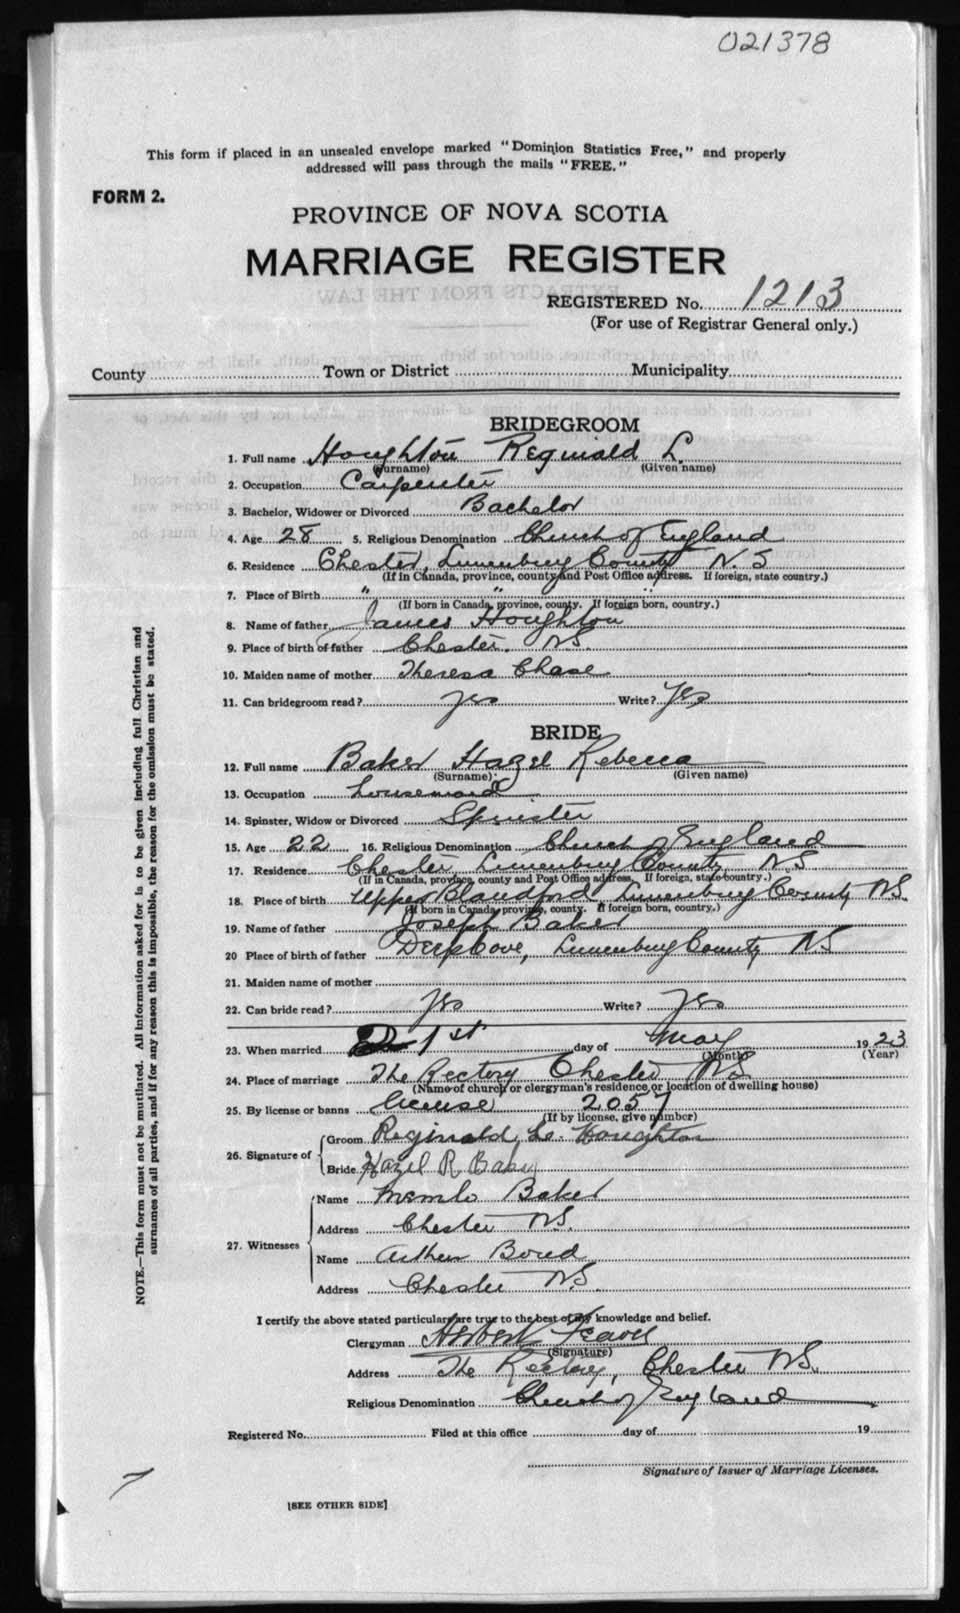 021378
This form if placed in an unsealed envelope marked "Dominion Statistics Free," and properly
addressed will pass through the mails "FREE."
FORM 2.
PROVINCE OF NOVA SCOTIA
MARRIAGE REGISTER
EXTRACTS FROM THE LAW
REGISTERED No. 1213
(For use of Registrar General only.)
County Town or District Municipality
BRIDEGROOM
1. Full name Houghton Reginald L.
(Surname) (Given name)
2. Occupation Carpenter
3. Bachelor, Widower or Divorced Bachelor
4. Age 28 5. Religious Denomination Church of England
6. Residence Chester, Lunenburg County N.S
(If in Canada, province, county and Post Office address. If foreign, state country.)
7. Place of Birth " " "
(If born in Canada, province, county. If foreign born, country.)
8. Name of father James Houghton
9. Place of birth of father Chester. N.S.
10. Maiden name of mother Theresa Chase
11. Can bridegroom read? yes Write? Yes
BRIDE
12. Full name Baker Hazel Rebecca
(Surname) (Given name)
13. Occupation housemaid
14. Spinster, Widow or Divorced Spinster
15. Age 22 16. Religious Denomination Church of England
17. Residence Chester, Lunenburg County N.S
(If in Canada, province, county and Post Office address, If foreign, state country.)
18. Place of birth Upper Blandford Lunenburg County N.S.
(If born in Canada, province, county. If foreign born, country.)
19. Name of father Joseph Baker
20 Place of birth of father Deep Cove, Lunenburg County N.S
21. Maiden name of mother
22. Can bride read? Yes Write? Yes
23. When married 1st day of May 1923
(Month) (Year)
24. Place of marriage The Rectory Chester N.S
(Name of church or clergyman's residence or location of dwelling house)
25. By license or banns license 2057
(If by license, give number)
26. Signature of
Groom Reginald L. Houghton
Bride Hazel R Baker
27. Witnesses
Name Baker
Address Chester N.S.
Name Arthur Bond
Address Chester N.S.
I certify the above stated particulars are true to the best of my knowledge and belief.
Clergyman Herbert
(Signature)
Address The Rectory, Chester N.S.
Religious Denomination Church of England
Registered No. Filed at this office day of 19
Signature of Issuer of Marriage Licenses.
[SEE OTHER SIDE]
NOTE.—This form must not be mutilated. All information asked for is to be given including full Christian and
surnames of all parties, and if for any reason this is impossible, the reason for the omission must be stated.